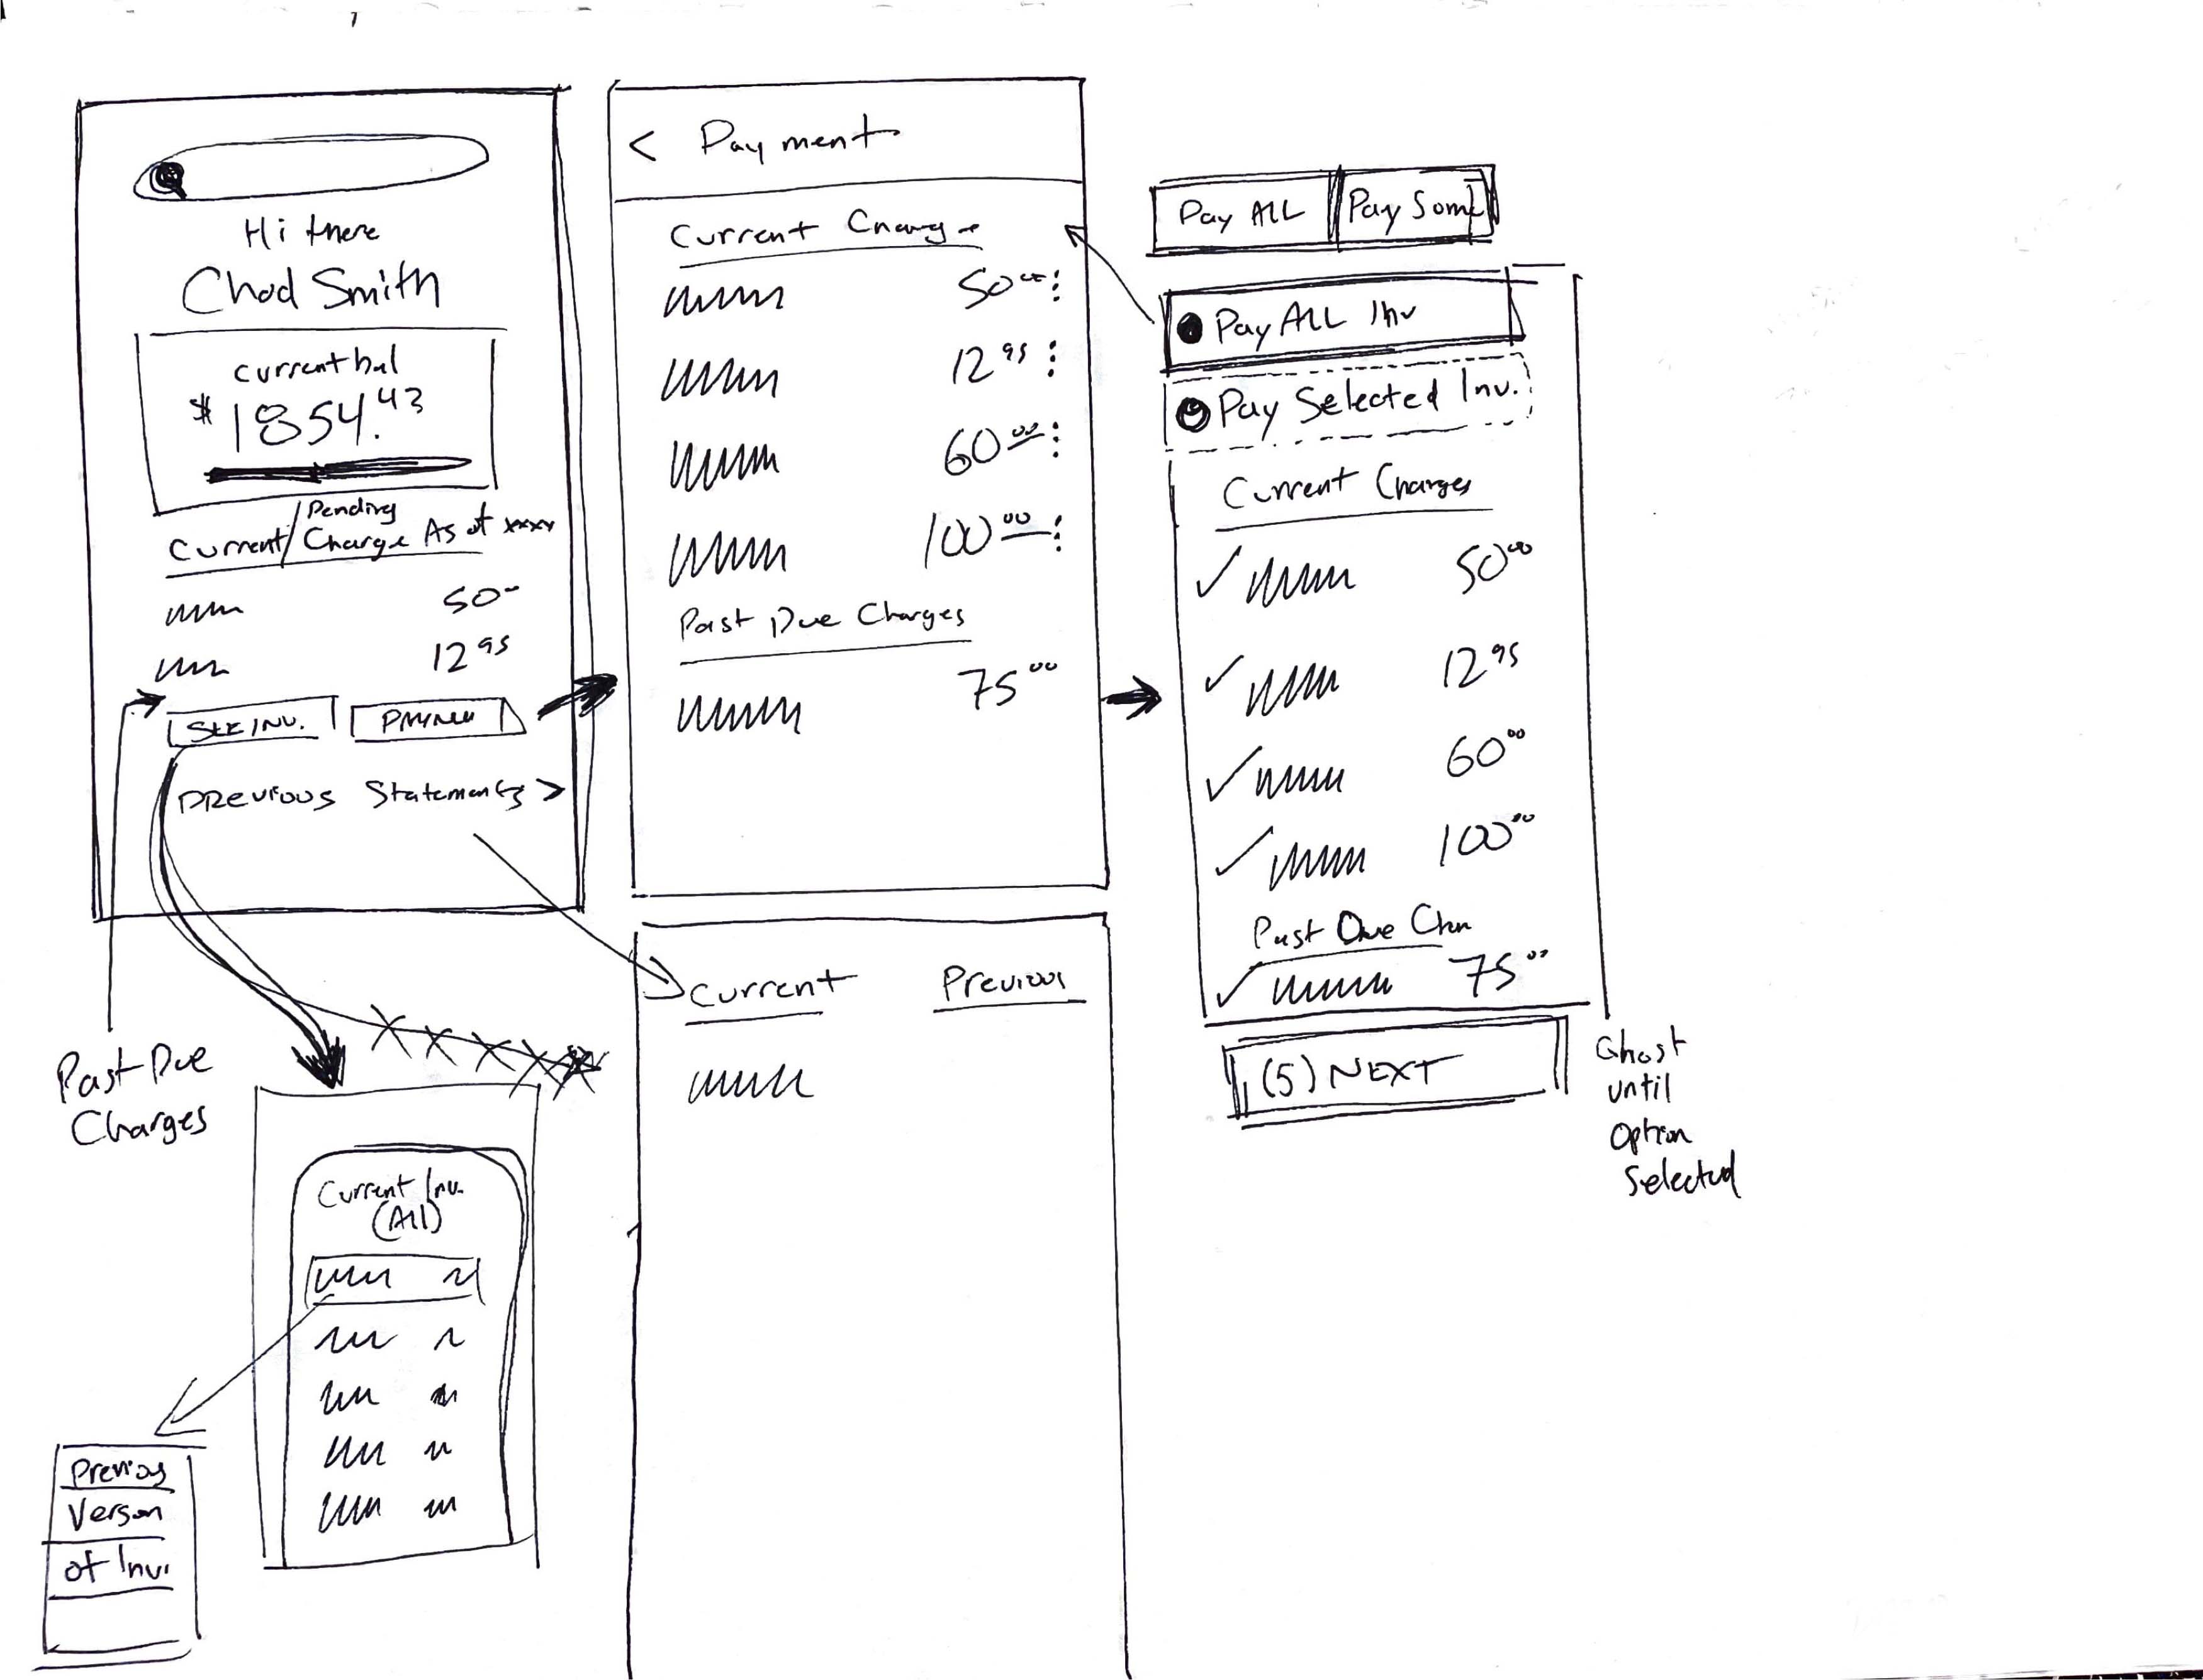 Hi there
Chad Smith
current bal
$1854.43
Pending
Current/Charge As of xxxx
50-
12 95
SEE INV.
Previous Statements >
Past Due
Charges
< Payment
Current Charge
50 00
12 95
60 00
100 00
Past Due Charges
75 00
Pay ALL
Pay Some
Pay ALL Inv
Pay Selected Inv.
Current Charges
50 00
12 95
60 00
100 00
Past Due Char
75 00
(5) NEXT
Ghost
until
option
Selected
Current
Previous
Current Inv.
(All)
Previous
Version
of Inv.